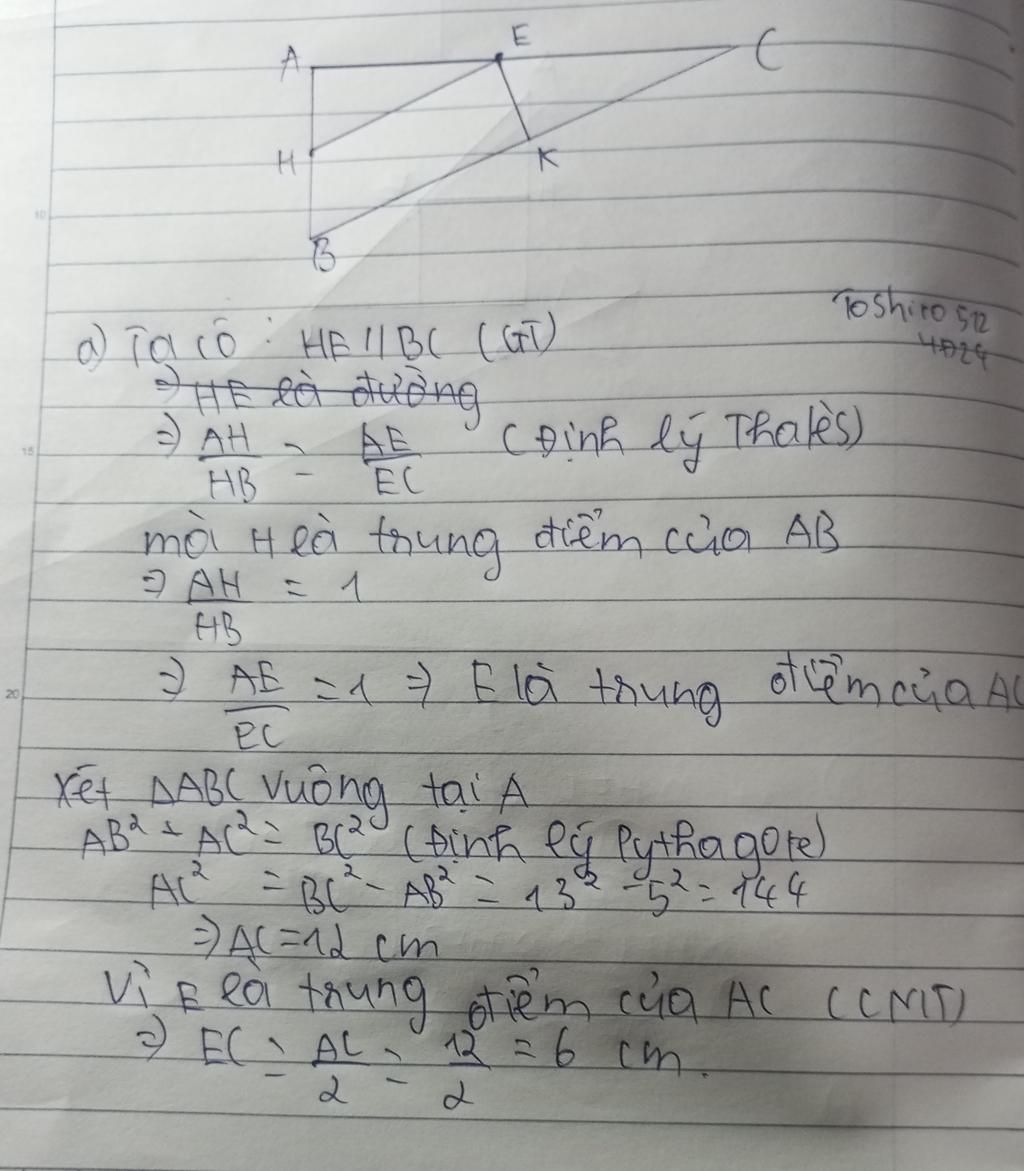 A
E
C
H
K
B
10
Toshiro 512
4024
a) Ta có : HE // BC (GT)
⇒ HE là đường
⇒ AH/HB = AE/EC (Định lý Thalès)
15
mà H là trung điểm của AB
⇒ AH/HB = 1
⇒ AE/EC = 1 ⇒ E là trung điểm của AC
20
Xét ΔABC vuông tại A
AB² + AC² = BC² (Định lý Pythagore)
AC² = BC² - AB² = 13² - 5² = 144
⇒ AC = 12 cm
Vì E là trung điểm của AC (CMT)
⇒ EC = AC/2 = 12/2 = 6 cm.